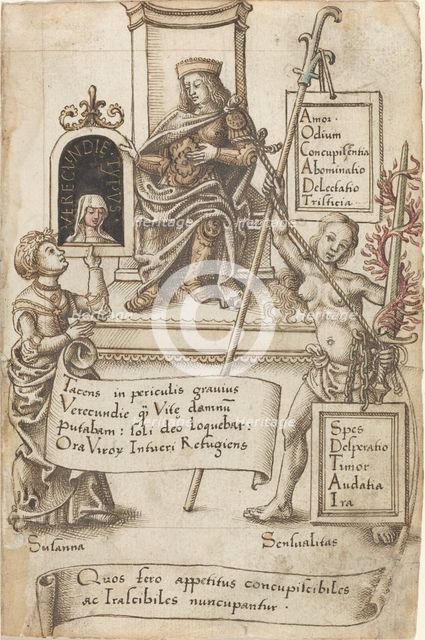 VERECUNDIE TYPUS
Amor.
Odium
Concupiscentia
Abominatio
Delectatio
Tristicia
Tacens in periculis gravius
Verecundie qȝ Vite damnū
putabam: soli deo loquebar:
Ora Viroꝝ Intueri Refugiens
Spes
Desperatio
Timor
Audatia
Ira
Susanna
Sensualitas
Quos fero appetitus concupiscibiles
ac Irascibiles nuncupantur.
Heritage
Heritage
Heritage
Heritage